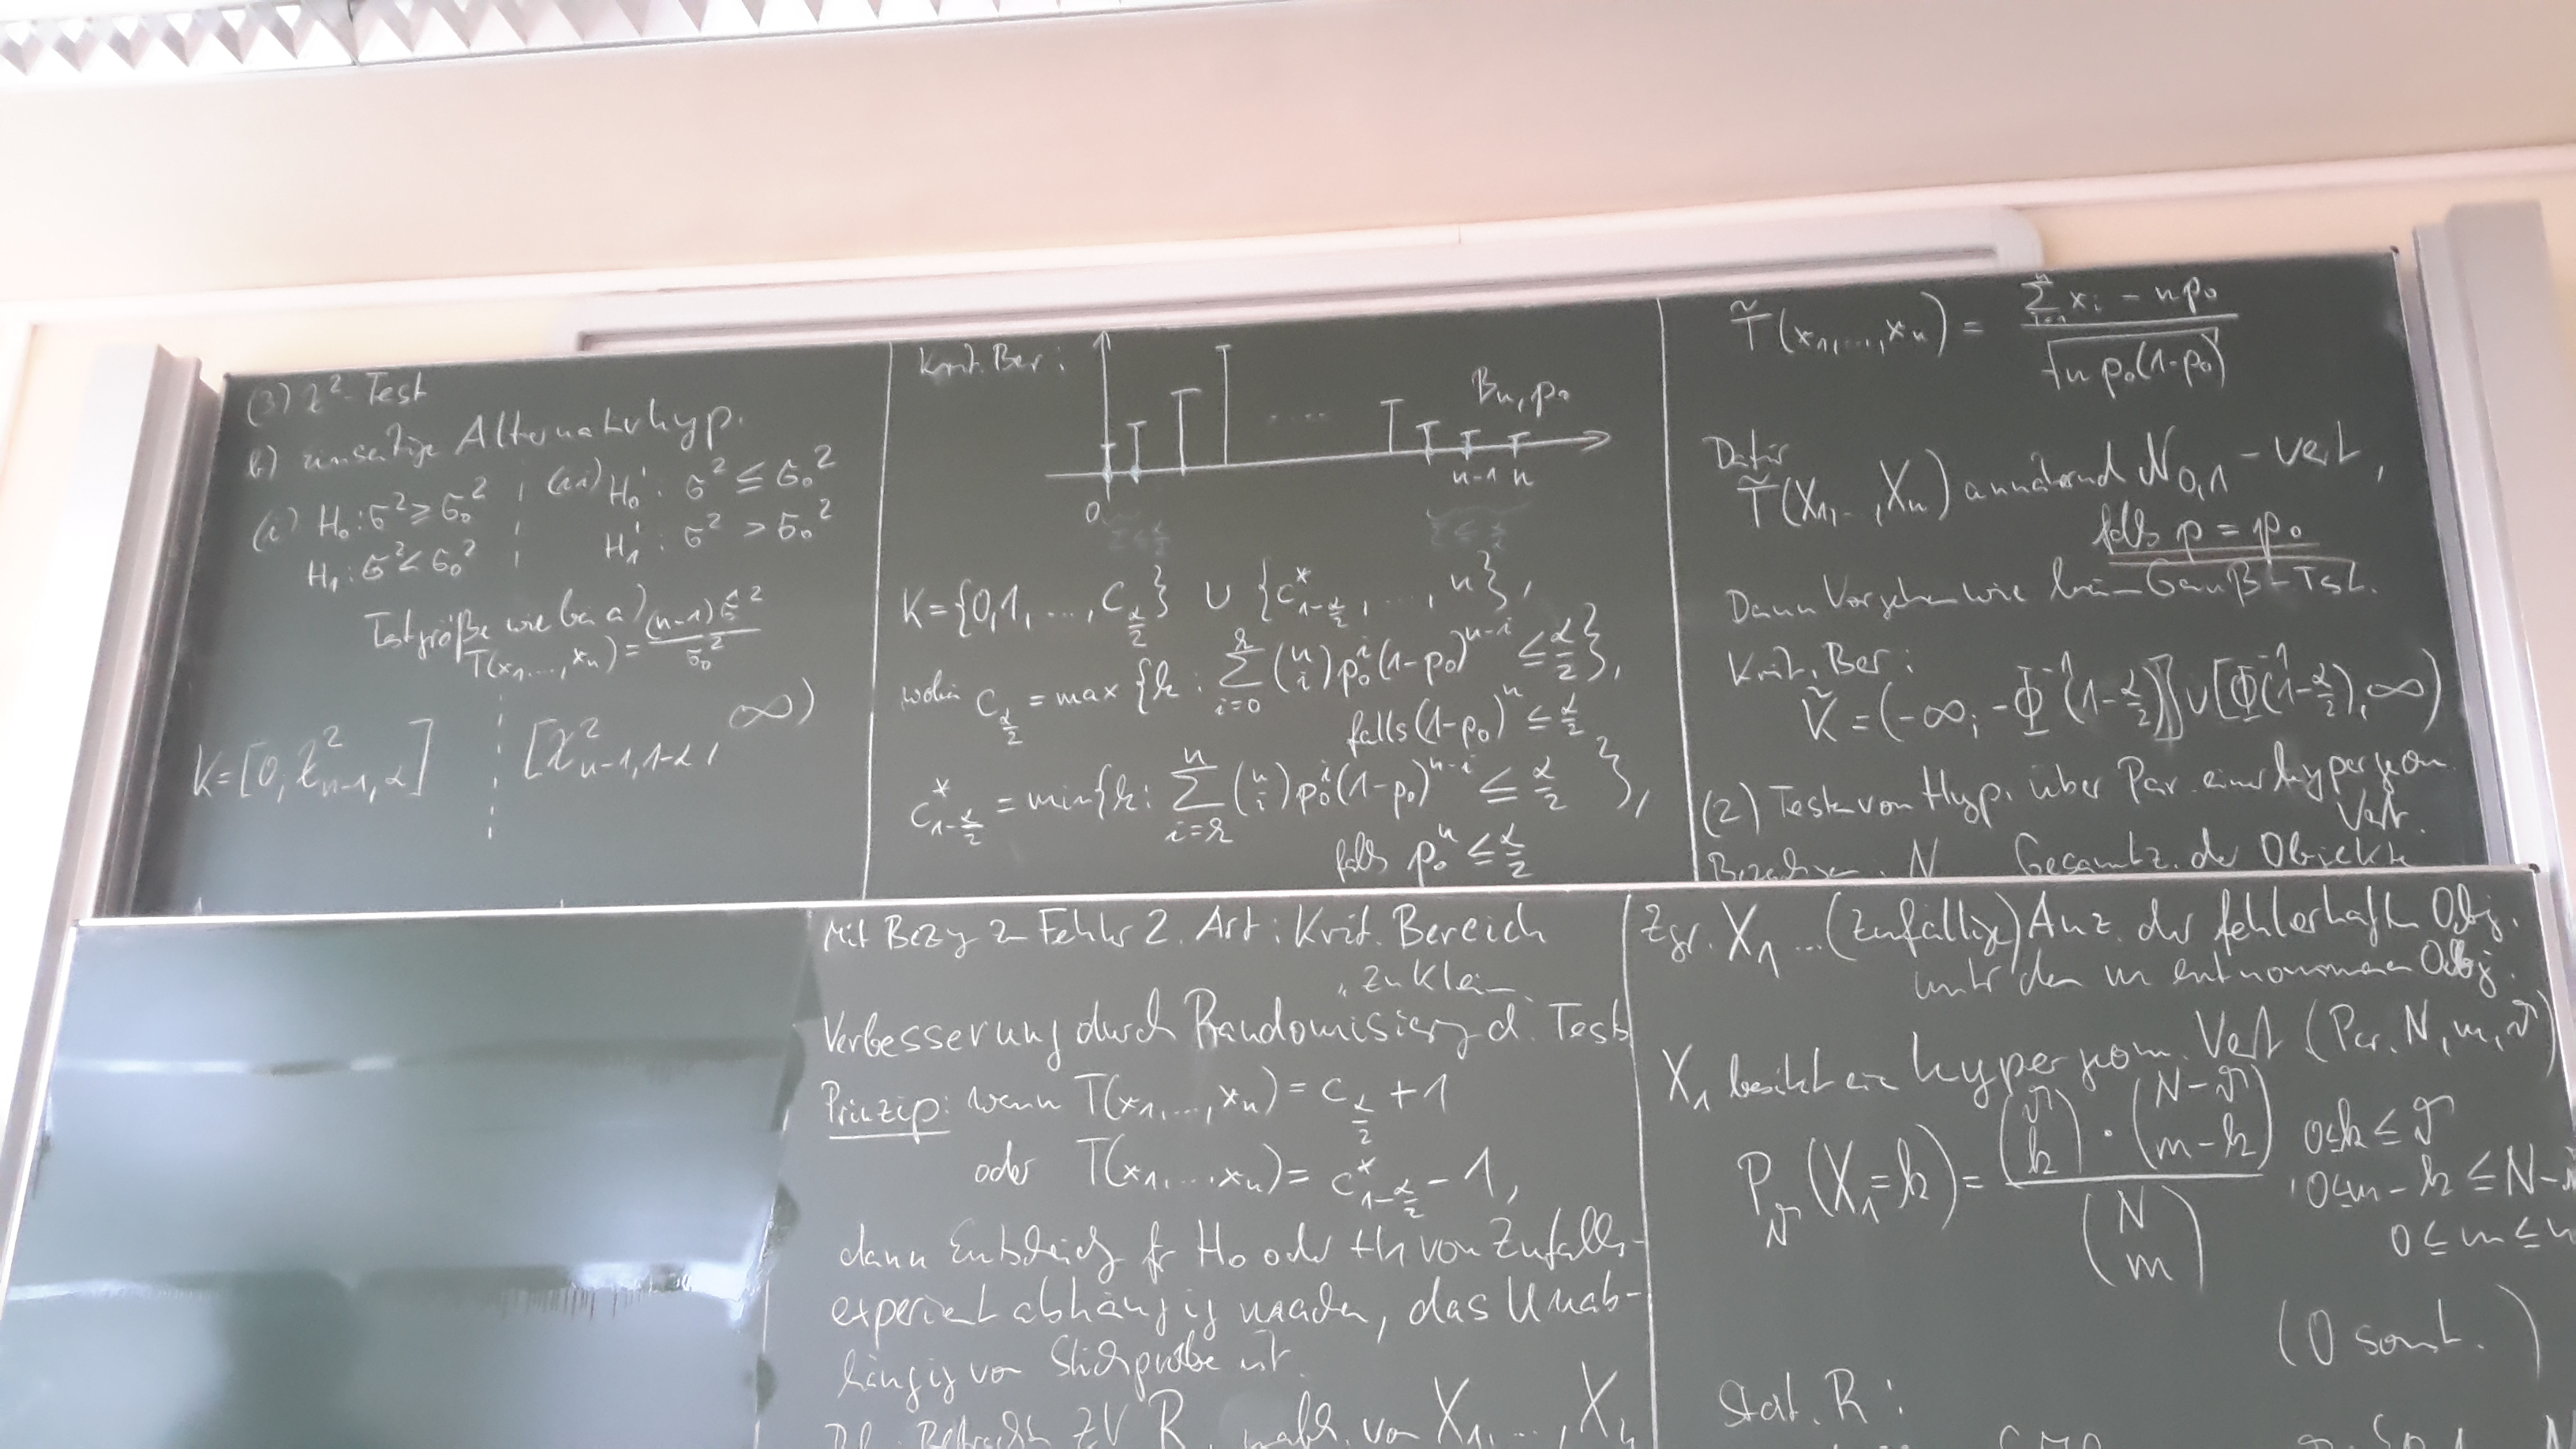 (3) χ²-Test
b) einseitige Alternativhyp.
(i) H₀: σ² ≥ σ₀² (ii) H₀': σ² ≤ σ₀²
H₁: σ² < σ₀² H₁': σ² > σ₀²
Testgröße wie bei a)
T(x₁,...,xₙ) = (n-1)σ̂²/σ₀²
K = [0, χ²_{n-1,α}] [χ²_{n-1,1-α}, ∞)
Krit. Ber:
B_{n,p₀}
0 n-1 n
Σ ≤ α/2 Σ ≤ α/2
K = {0,1,...,c_{α/2}} ∪ {c*_{1-α/2},...,n},
wobei c_{α/2} = max {k : Σ_{i=0}^{k} (n i) p₀^i (1-p₀)^{n-i} ≤ α/2},
falls (1-p₀)^n ≤ α/2
c*_{1-α/2} = min {k : Σ_{i=k}^{n} (n i) p₀^i (1-p₀)^{n-i} ≤ α/2},
falls p₀^n ≤ α/2
T̃(x₁,...,xₙ) = (Σ_{i=1}^{n} x_i - np₀)/√(n p₀(1-p₀))
Dafür
T̃(X₁,..,Xₙ) annähernd N_{0,1}-vert,
falls p = p₀
Dann Vorgehen wie beim Gauß-Test.
Krit. Ber:
K̃ = (-∞, -Φ⁻¹(1-α/2)] ∪ [Φ⁻¹(1-α/2), ∞)
(2) Testen von Hyp. über Par. einer hypergeom.
Vert.
N Gesamtz. der Objekte
Mit Bezug zu Fehler 2. Art: Krit. Bereich
"zu klein
Verbesserung durch Randomisierg d. Tests
Prinzip: wenn T(x₁,...,xₙ) = c_{α/2} + 1
oder T(x₁,...,xₙ) = c*_{1-α/2} - 1,
dann Entscheidg für H₀ oder H₁ von Zufalls-
experiment abhängig machen, das Unab-
hängig von Stichprobe ist.
ZV R, unabh. von X₁,...,Xₙ
Zgr. X₁ ... (zufällige) Anz. der fehlerhaften Obj.
unter den m entnommenen Obj.
X₁ besitzt eine hypergeom. Vert (Par. N, m, ϑ)
P_ϑ(X₁=k) = (ϑ k) · (N-ϑ m-k) / (N m) , 0≤k≤ϑ
0≤m-k≤N-ϑ
0≤m≤
(0 sonst.)
Stat. R: